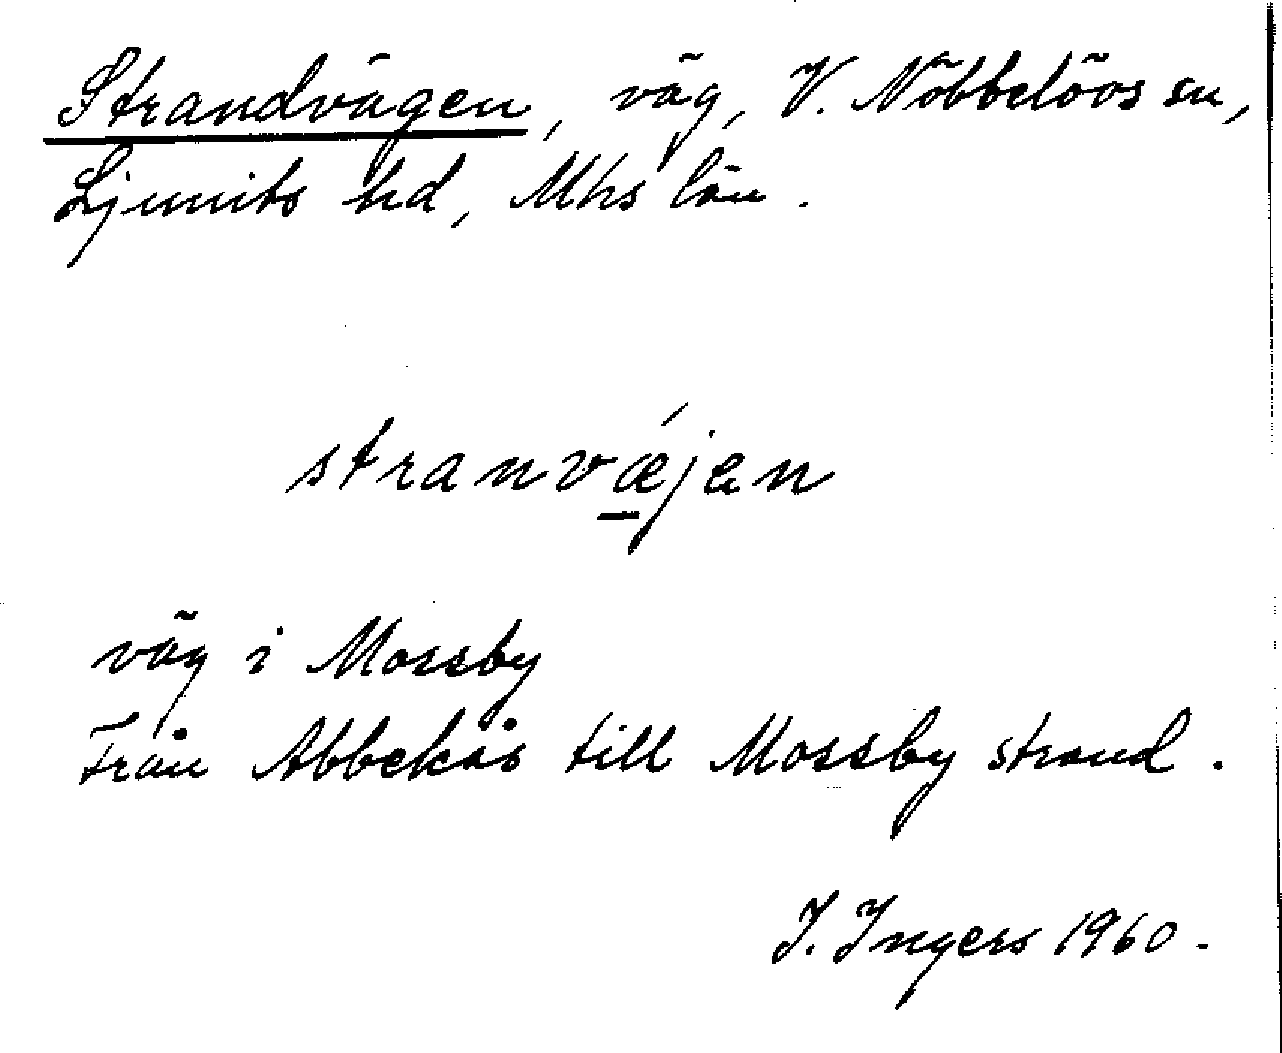 Strandvägen, väg, V. Nöbbelövs sn,
Ljunits hd, Mhs län.
stranvǽjen
väg i Mossby
Från Abbekås till Mossby strand.
I. Ingers 1960.